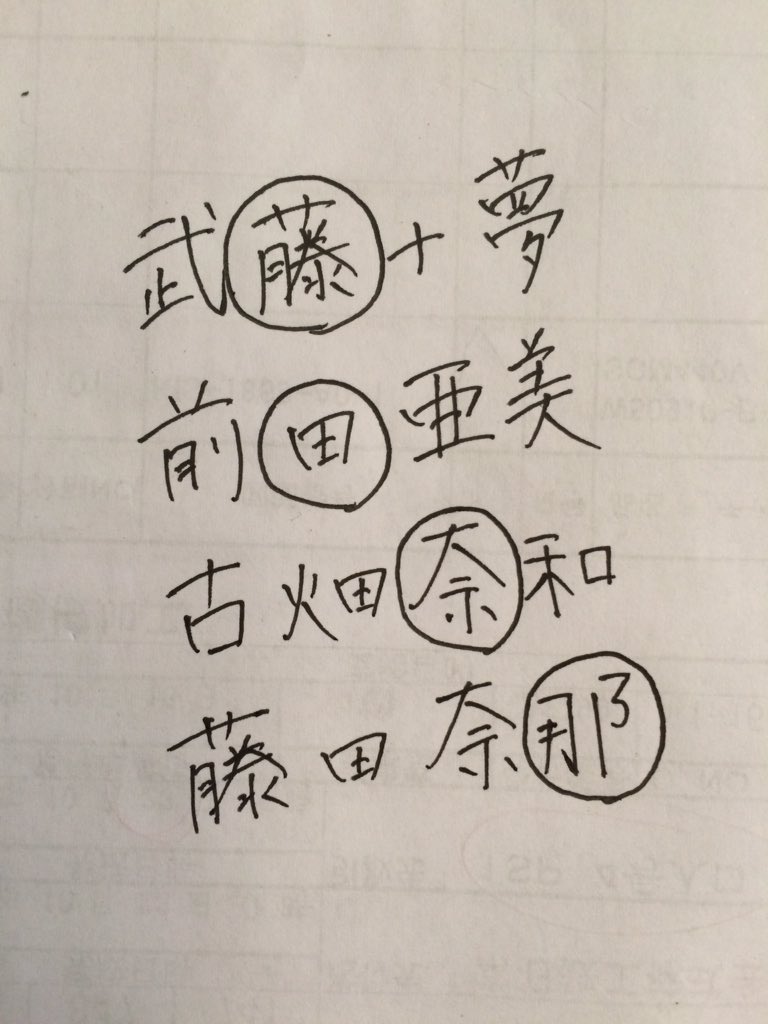 武藤十夢
前田亜美
古畑奈和
藤田奈那